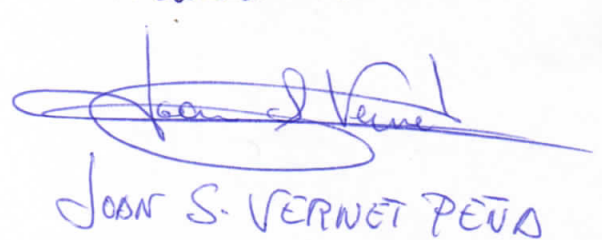 Joan S Vernet
JOAN S. VERNET PEÑA